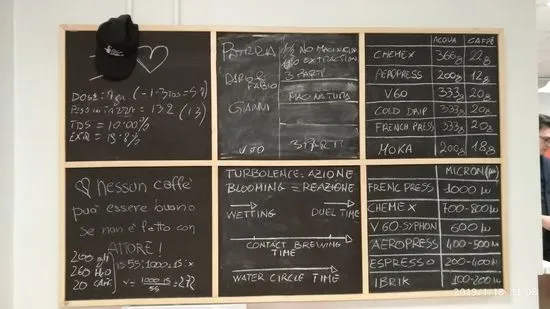 DOSE:
PESO IN TAZZA = 132
TDS = 10.00%
EXR = 18.8%
PETRRA
NO MACINATURA
NO EXTRACTION
3 PARTI
DARIO &
FABIO
MACINATURA
GIANNI
VITO
3 PARTI
ACQUA CAFFÈ
CHEMEX 366g 22g
AEROPRESS 200g 12g
V60 333g 20g
COLD DRIP 333g 20g
FRENCH PRESS 333g 20g
MOKA 200g 18g
nessun caffè
può essere buono
se non è fatto con
AMORE!
200
260 H2O
20 CAFFÈ
55:1000=15:x
1000·15
55
TURBOLENCE = AZIONE
BLOOMING = REAZIONE
WETTING DUEL TIME
CONTACT BREWING
TIME
WATER CIRCLE TIME
MICRON (µ)
FRENC PRESS 1000 µ
CHEMEX 700-800 µ
V60-SYPHON 600 µ
AEROPRESS 400-500 µ
ESPRESSO 200-400 µ
IBRIK 100-200 µ
2019/1/18 11:08